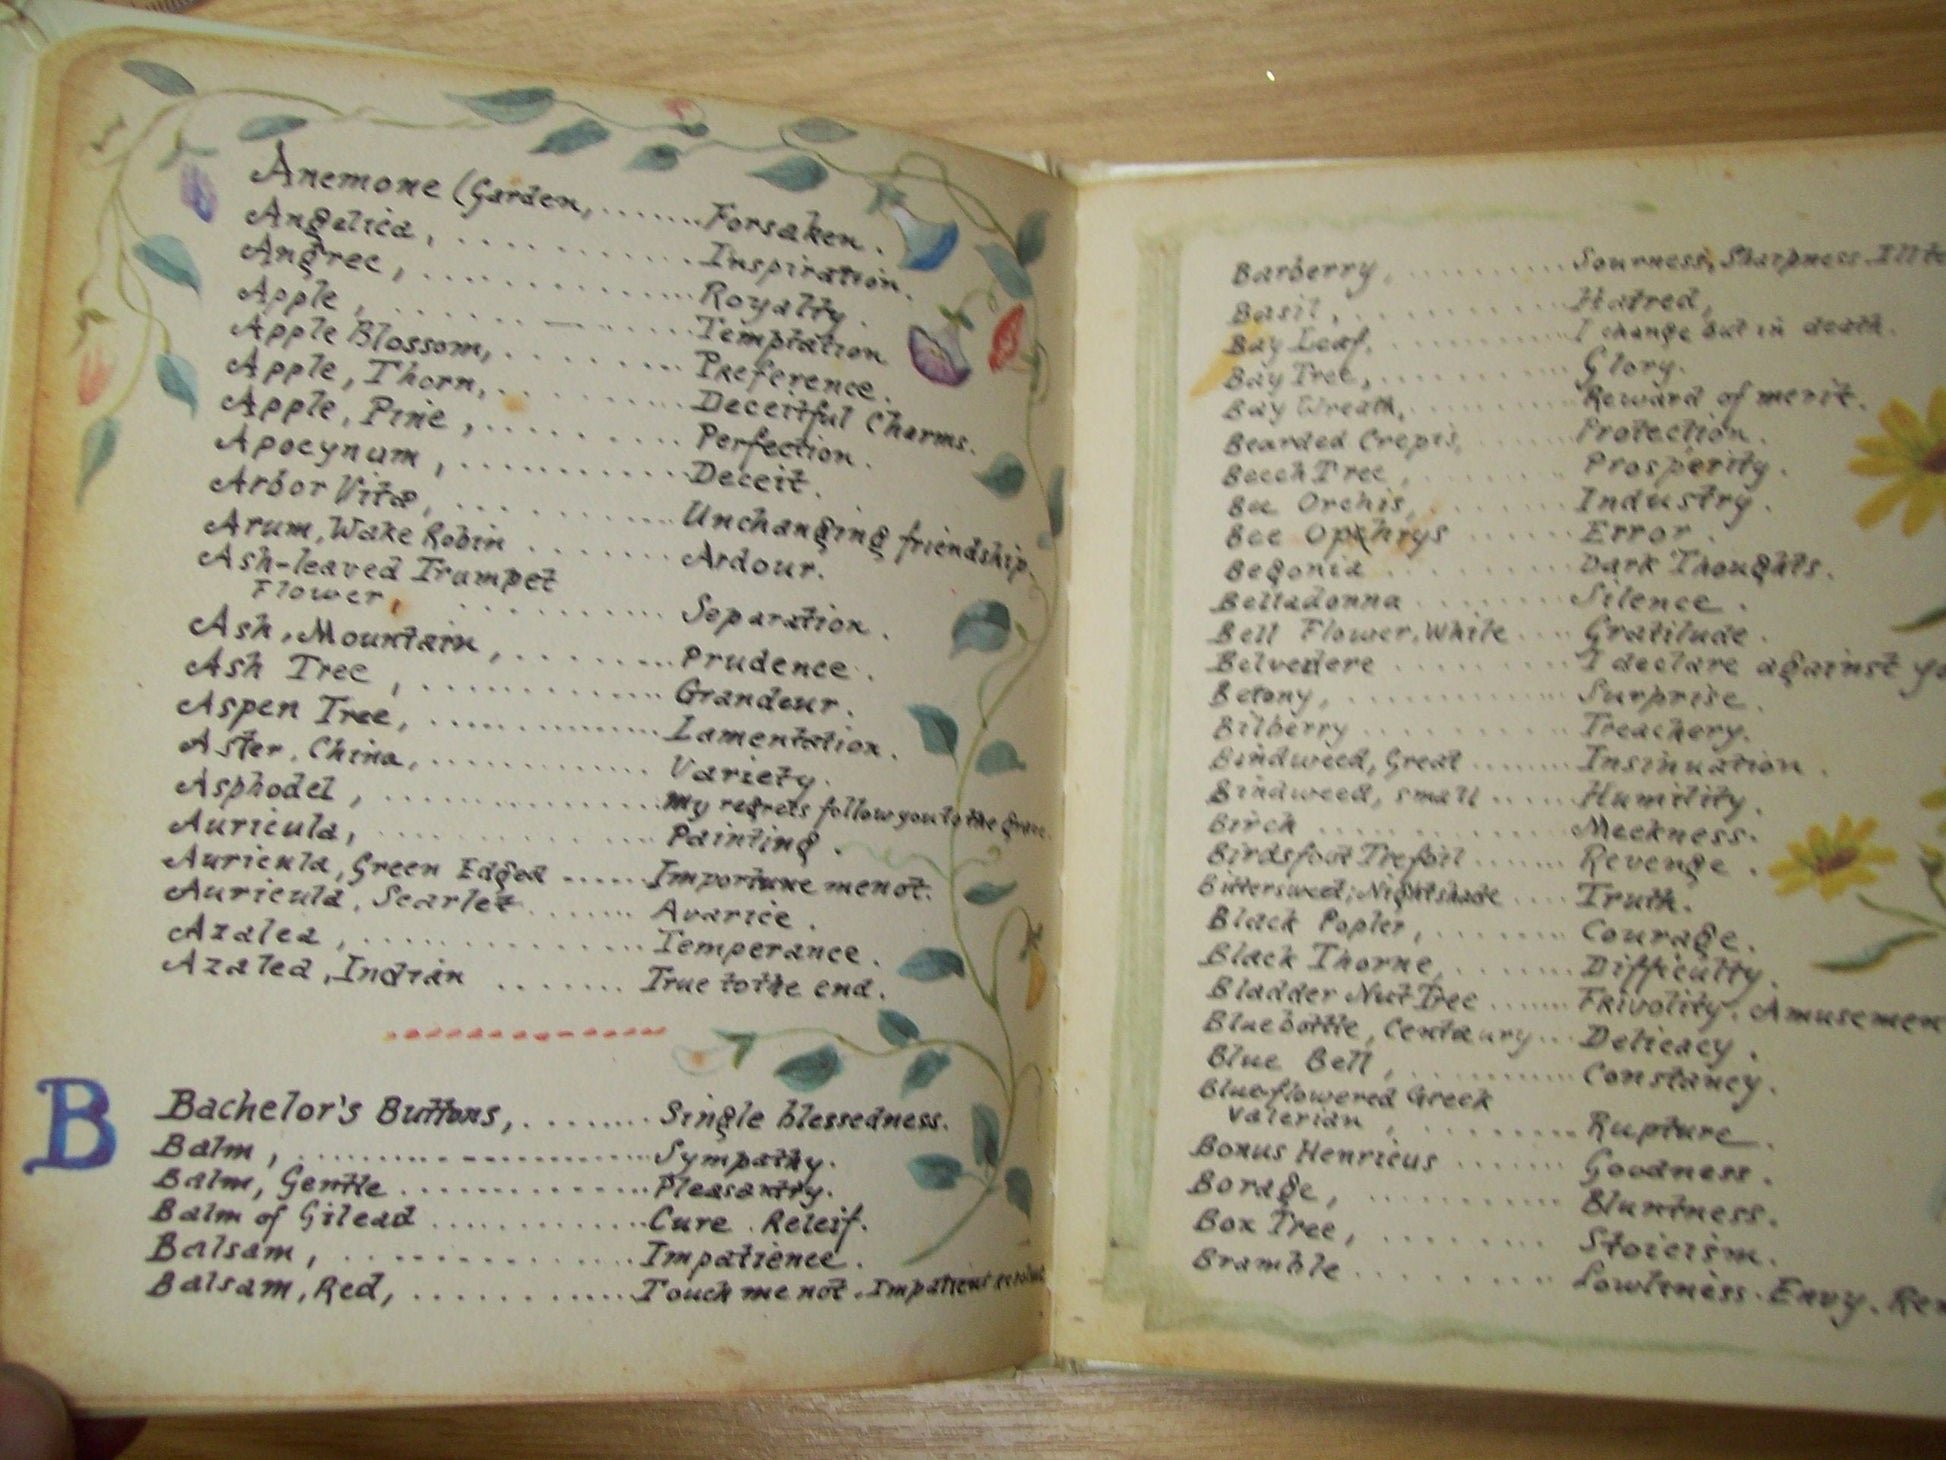 Anemone (Garden, ....... Forsaken.
Angelica, ........... Inspiration.
Angrec, ............. Royalty.
Apple, ............ Temptation
Apple Blossom, ......... Preference.
Apple, Thorn, .......... Deceitful Charms.
Apple, Pine, ......... Perfection.
Apocynum, ............ Deceit.
Arbor Vitæ, ............ Unchanging friendship.
Arum, Wake Robin ........ Ardour.
Ash-leaved Trumpet
Flower, ........... Separation.
Ash, Mountain, ......... Prudence.
Ash Tree, ............. Grandeur.
Aspen Tree, ............. Lamentation.
Aster, China, ............ Variety.
Asphodel, ............... My regrets follow you to the grave.
Auricula, ............ Painting.
Auricula, Green Edged ...... Importune me not.
Auricula, Scarlet ....... Avarice.
Azalea, .............. Temperance.
Azalea, Indian ....... True to the end.
B
Bachelor's Buttons, ........ Single blessedness.
Balm, .................... Sympathy.
Balm, Gentle ............. Pleasantry.
Balm of Gilead ............ Cure. Releif.
Balsam, .............. Impatience.
Balsam, Red, ............. Touch me not. Impatient
Barberry, .......... Sourness, Sharpness.
Basil, ........... Hatred,
Bay Leaf, .......... I change but in death.
Bay Tree, ......... Glory.
Bay Wreath, ......... Reward of merit.
Bearded Crepis, ...... Protection.
Beech Tree, ....... Prosperity.
Bee Orchis, ....... Industry.
Bee Ophrys ...... Error.
Begonia .......... Dark Thoughts.
Belladonna ........ Silence.
Bell Flower, While .... Gratilude.
Belvedere .......... I declare against
Betony, ............ Surprise.
Bilberry ........... Treachery.
Bindweed, Great ........ Insinuation.
Bindweed, small ...... Humility.
Birch ............ Meekness.
Birdsfoot Trefoil ....... Revenge.
Bittersweet; Nightshade .... Truth.
Black Popler, ........ Courage.
Black Thorne, ....... Difficulty.
Bladder Nut Tree ....... Frivolity. Amusemen
Bluebottle, Centaury ... Delicacy.
Blue Bell, ........... Constancy.
Blue-flowered Greek
Valerian, ......... Rupture.
Bonus Henricus ....... Goodness.
Borage, .......... Bluntness.
Box Tree, ........ Stoicism.
Bramble ......... Lowliness. Envy.